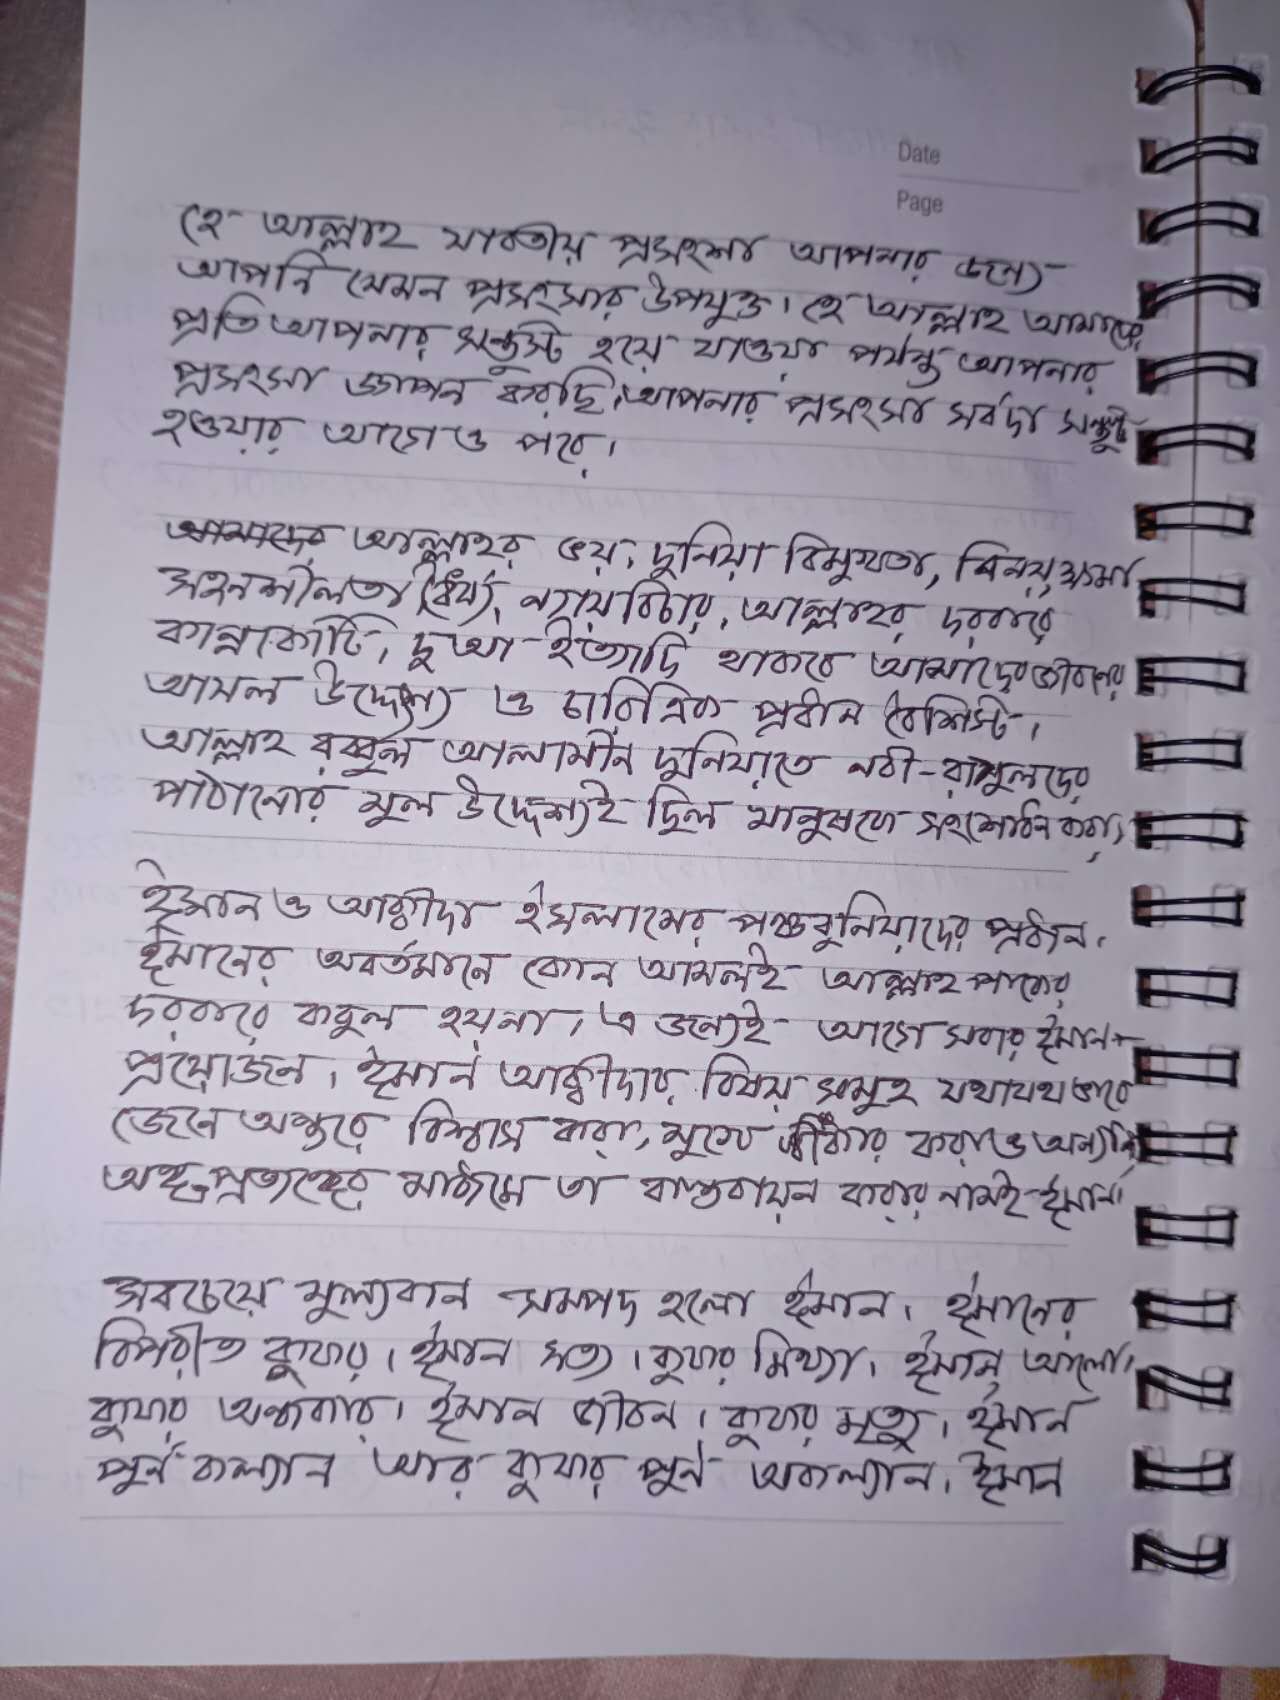 Date
Page
হে আল্লাহ যাবতীয় প্রসংশা আপনার জন্যে
আপনি যেমন প্রসংসার উপযুক্ত। হে আল্লাহ আমাদের
প্রতি আপনার সন্তুস্টি হয়ে যাওয়া পর্যন্ত আপনার
প্রসংসা জ্ঞাপন করছি। আপনার প্রসংসা সর্বদা সন্তুষ্ট
হওয়ার আগে ও পরে।
আমাদের আল্লাহর ভয়, দুনিয়া বিমুখতা, বিনয়, ক্ষমা
সহনশীলতা, ধৈর্য্য, ন্যায়বিচার, আল্লাহর দরবারে
কান্নাকাটি, দুআ ইত্যাদি থাকবে আমাদের জীবনের
আসল উদ্দেশ্য ও চারিত্রিক প্রধান বৈশিস্ট।
আল্লাহ রব্বুল আলামীন দুনিয়াতে নবী-রাসুলদের
পাঠানোর মূল উদ্দেশ্যই ছিল মানুষকে সংশোধন করা,
ঈমান ও আক্বীদা ইসলামের পঞ্চবুনিয়াদের প্রধান।
ঈমানের অবর্তমানে কোন আমলই আল্লাহ পাকের
দরবারে কবুল হয়না। এ জন্যেই আগে সবার ঈমান
প্রয়োজন। ঈমান আক্বীদার বিষয় সমুহ যথাযথ ভাবে
জেনে অন্তরে বিশ্বাস করা, মুখে স্বীকার করা ও অন্যান্য
অঙ্গ-প্রত্যঙ্গের মাধ্যমে তা বাস্তবায়ন করার নামই ঈমান।
সবচেয়ে মুল্যবান সমপদ হলো ঈমান। ঈমানের
বিপরীত কুফর। ঈমান সত্য। কুফর মিথ্যা। ঈমান আলো।
কুফর অন্ধকার। ঈমান জীবন। কুফর মৃত্যু। ঈমান
পুর্ন কল্যান আর কুফর পুর্ন অকল্যান। ঈমান